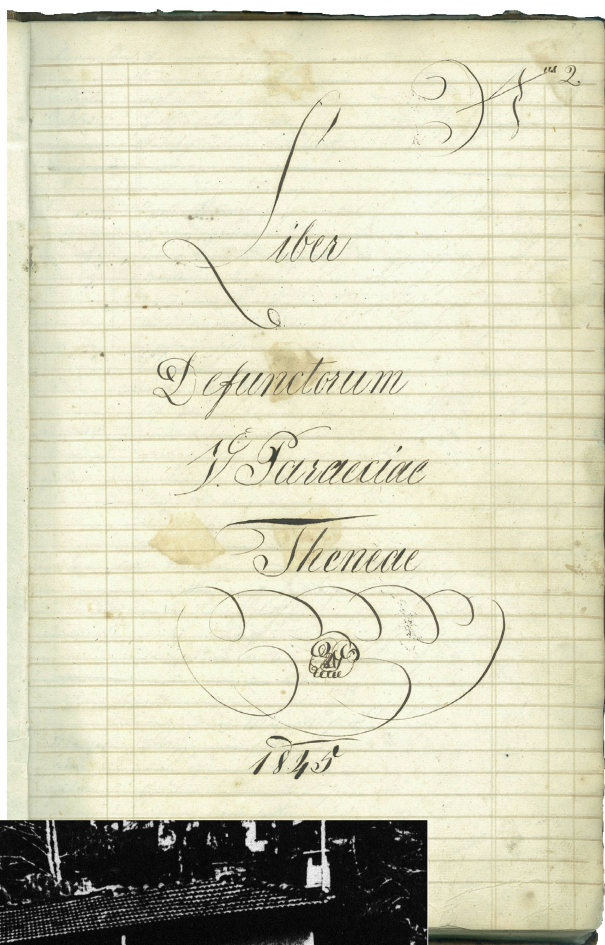 Nus 2
Liber
Defunctorum
Paraeciae
Theneae
1845